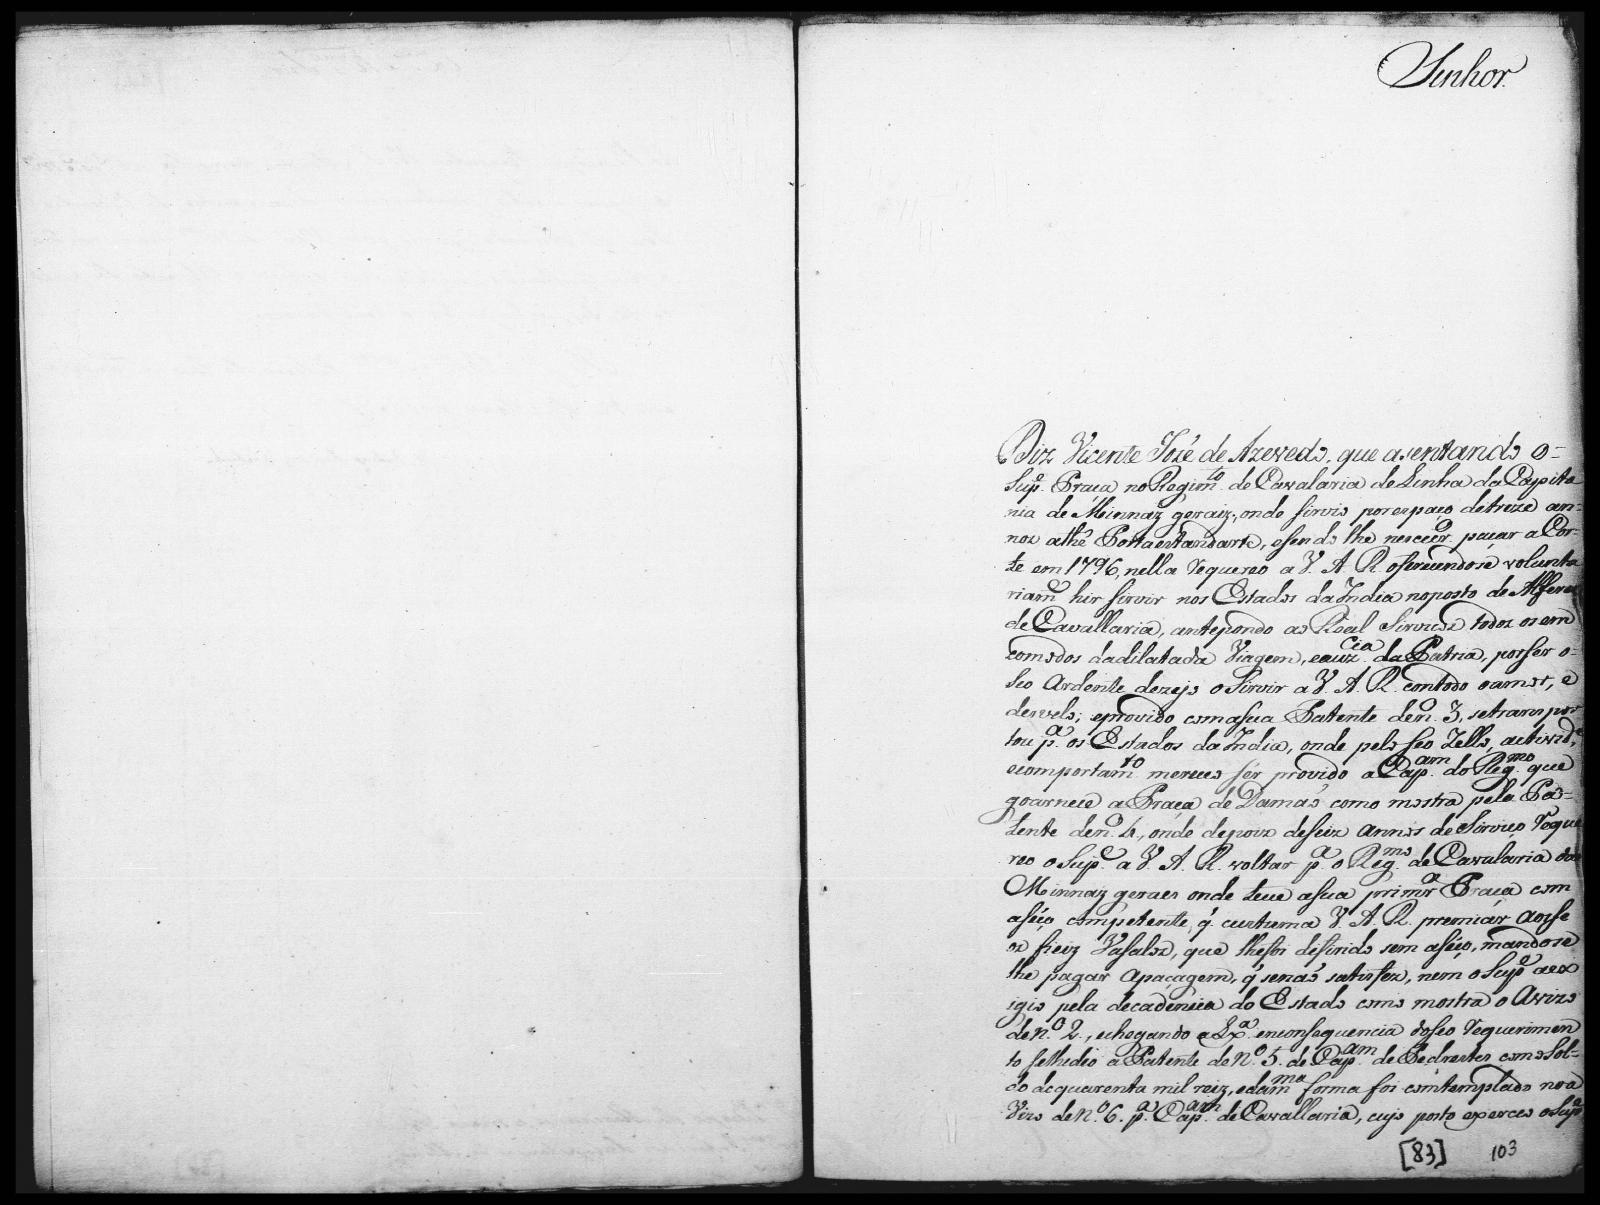 Senhor.
Diz Vicente Jozé de Azevedo, que asentando o=
Sup.e Praca no Regim.to de Cavalaria de Linha da Capita
nia de Minnaz geraiz, onde sirvio por espaço de treze an=
nos athé Portaestandarte, e sendo lhe nescecr.o paçar a Cor=
te em 1796, nella requereo a V. A. R. oferecendose volunta
riam.e hir sirvir nos Estados da India no posto de Alferes
de Cavallaria, antepondo ao Real Sirviczo todoz os em
comodos da dilatada Viagem, e auz.cia da Patria, por ser o=
seo Ardente dezejo o Sirvir a V. A. R. com todo o amor, e
desvelo; e provido com a sua Patente de n.o 3, se transpor
tou p.a os Estados da India, onde pelo seo Zello, activid.e,
e comportam.to mereceo sér provido a Cap.am do Reg.mo que
goarnece a Praca de Damaõ como mostra pela Pa=
tente de n.o 4., onde depoiz de seiz annos de Serviço reque
reo o Sup.e a V. A. R. voltar p.a o Reg.mo de Cavalaria das
Minnaz geraes onde teve a sua primr.a Praca com
aséço competente, q. custuma V. A. R. premiár aos se
os fieiz Vasalos, que lhe foi difirido sem aséço, mandose
lhe pagar a paçagem, q' se naõ satisfez, nem o Sup.e a ex
igio pela decadencia do Estado como mostra o Avizo
de N.o 2., e chegando a Lx.a em consequencia do seo requerimen
to se lhe dio a Patente de N.o 5. de Cap.am de Pedrestes com o Sol=
do de quarenta mil reiz, e da m.ma forma foi comtemplado no a
vizo de N.o 6. p.a Cap.am de Cavallaria, cujo posto exerceo o Sup.e
[83] 103